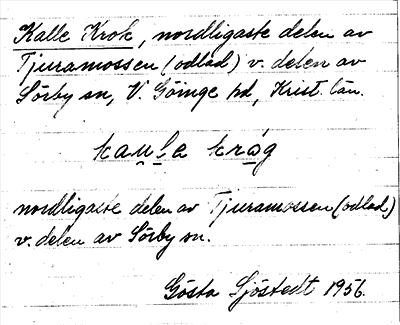 Kalle Krok, nordligaste delen av
Tjuramossen (odlad) v. delen av
Sörby sn, V. Göinge hd, Krist. län.
kaula krág
nordligaste delen av Tjuramossen (odlad)
v. delen av Sörby sn.
Gösta Sjöstedt 1956.